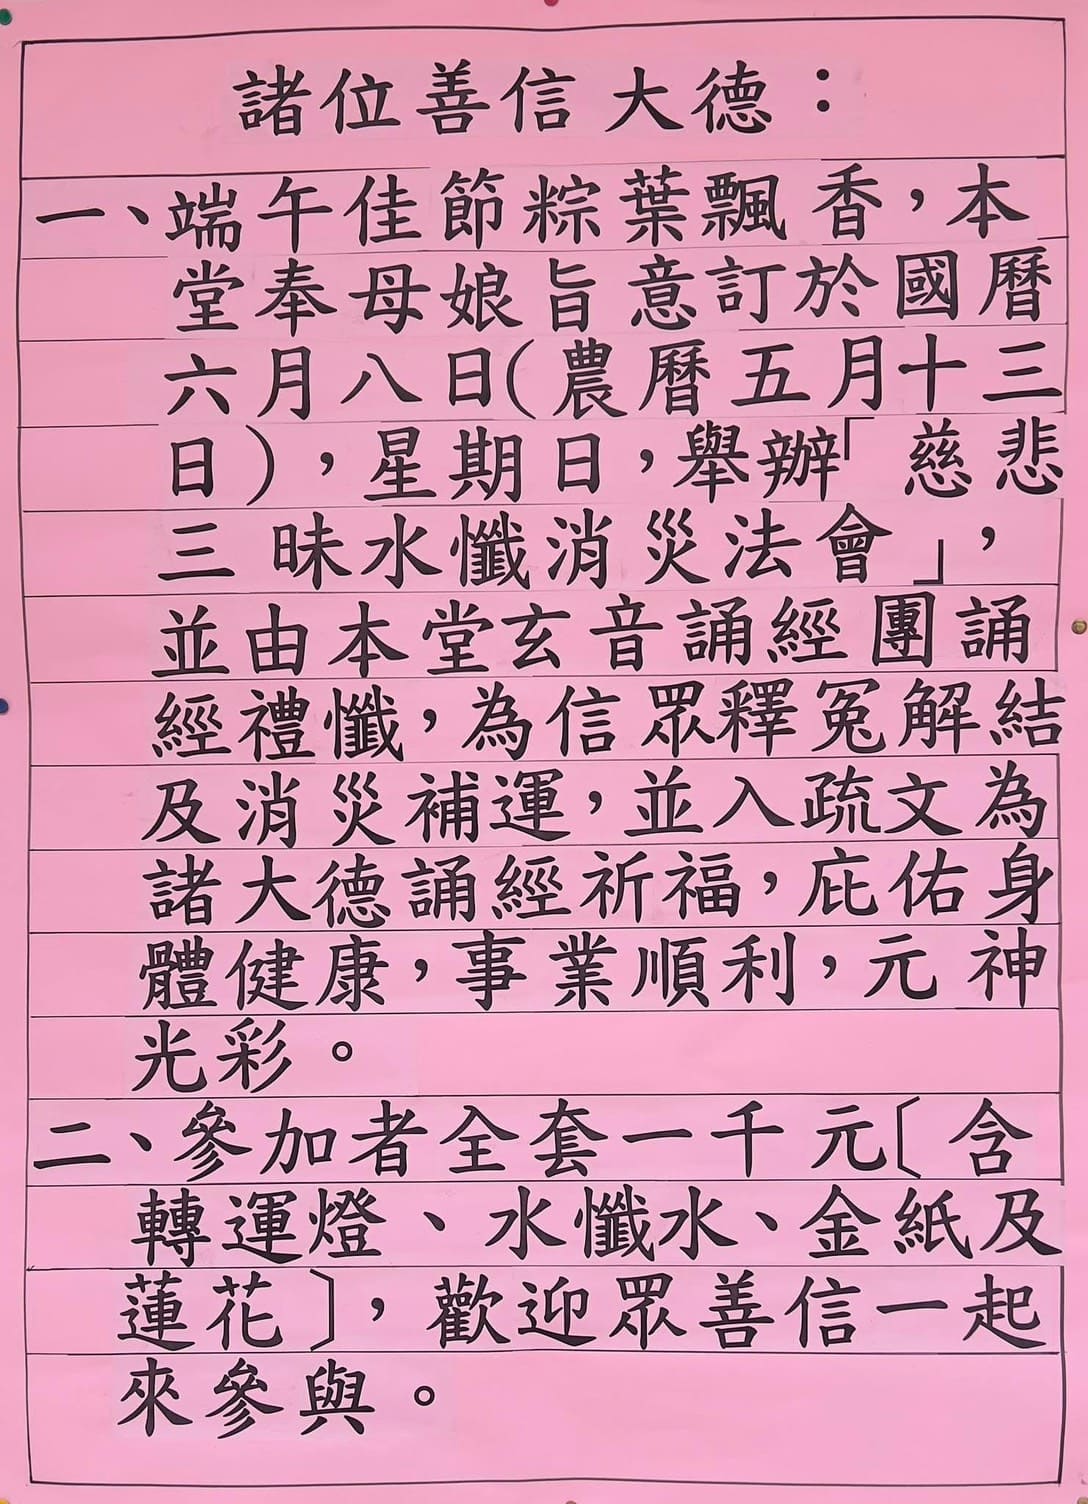 諸位善信大德：
一、端午佳節粽葉飄香，本
堂奉母娘旨意訂於國曆
六月八日(農曆五月十三
日)，星期日，舉辦「慈悲
三昧水懺消災法會」，
並由本堂玄音誦經團誦
經禮懺，為信眾釋冤解結
及消災補運，並入疏文為
諸大德誦經祈福，庇佑身
體健康，事業順利，元神
光彩。
二、參加者全套一千元〔含
轉運燈、水懺水、金紙及
蓮花〕，歡迎眾善信一起
來參與。